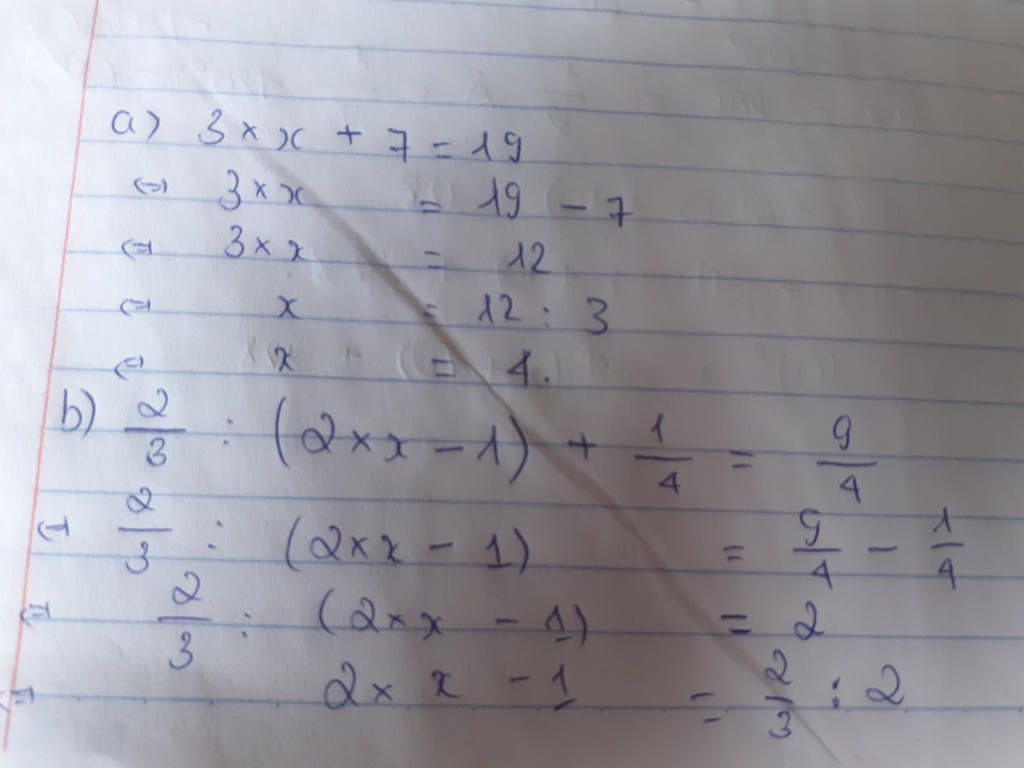 a) 3 × x + 7 = 19
⇔ 3 × x = 19 - 7
⇔ 3 × x = 12
⇔ x = 12 : 3
⇔ x = 4.
b) 2/3 : (2 × x - 1) + 1/4 = 9/4
⇔ 2/3 : (2 × x - 1) = 9/4 - 1/4
⇔ 2/3 : (2 × x - 1) = 2
⇔ 2 × x - 1 = 2/3 : 2